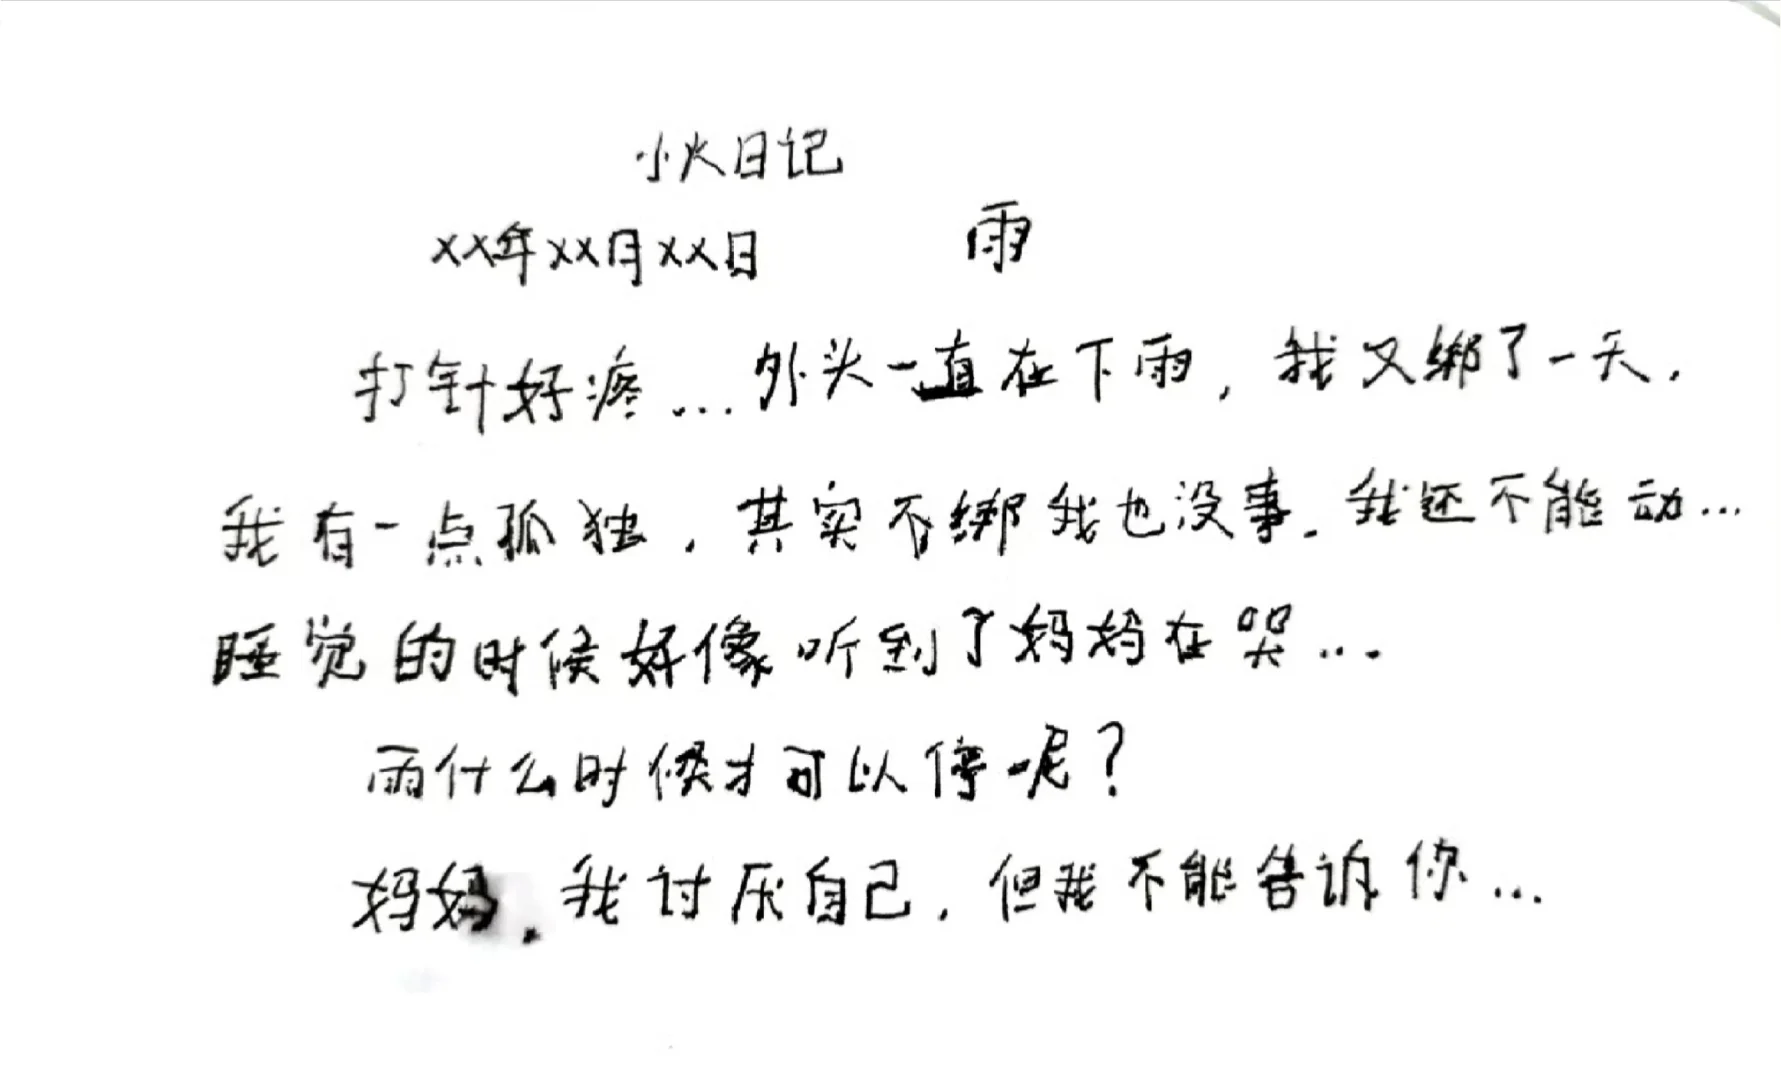 小火日记
XX年XX月XX日 雨
打针好疼...外头一直在下雨，我又绑了一天，
我有一点孤独，其实不绑我也没事。我还不能动...
睡觉的时候好像听到了妈妈在哭...
雨什么时候才可以停呢？
妈妈，我讨厌自己，但我不能告诉你...